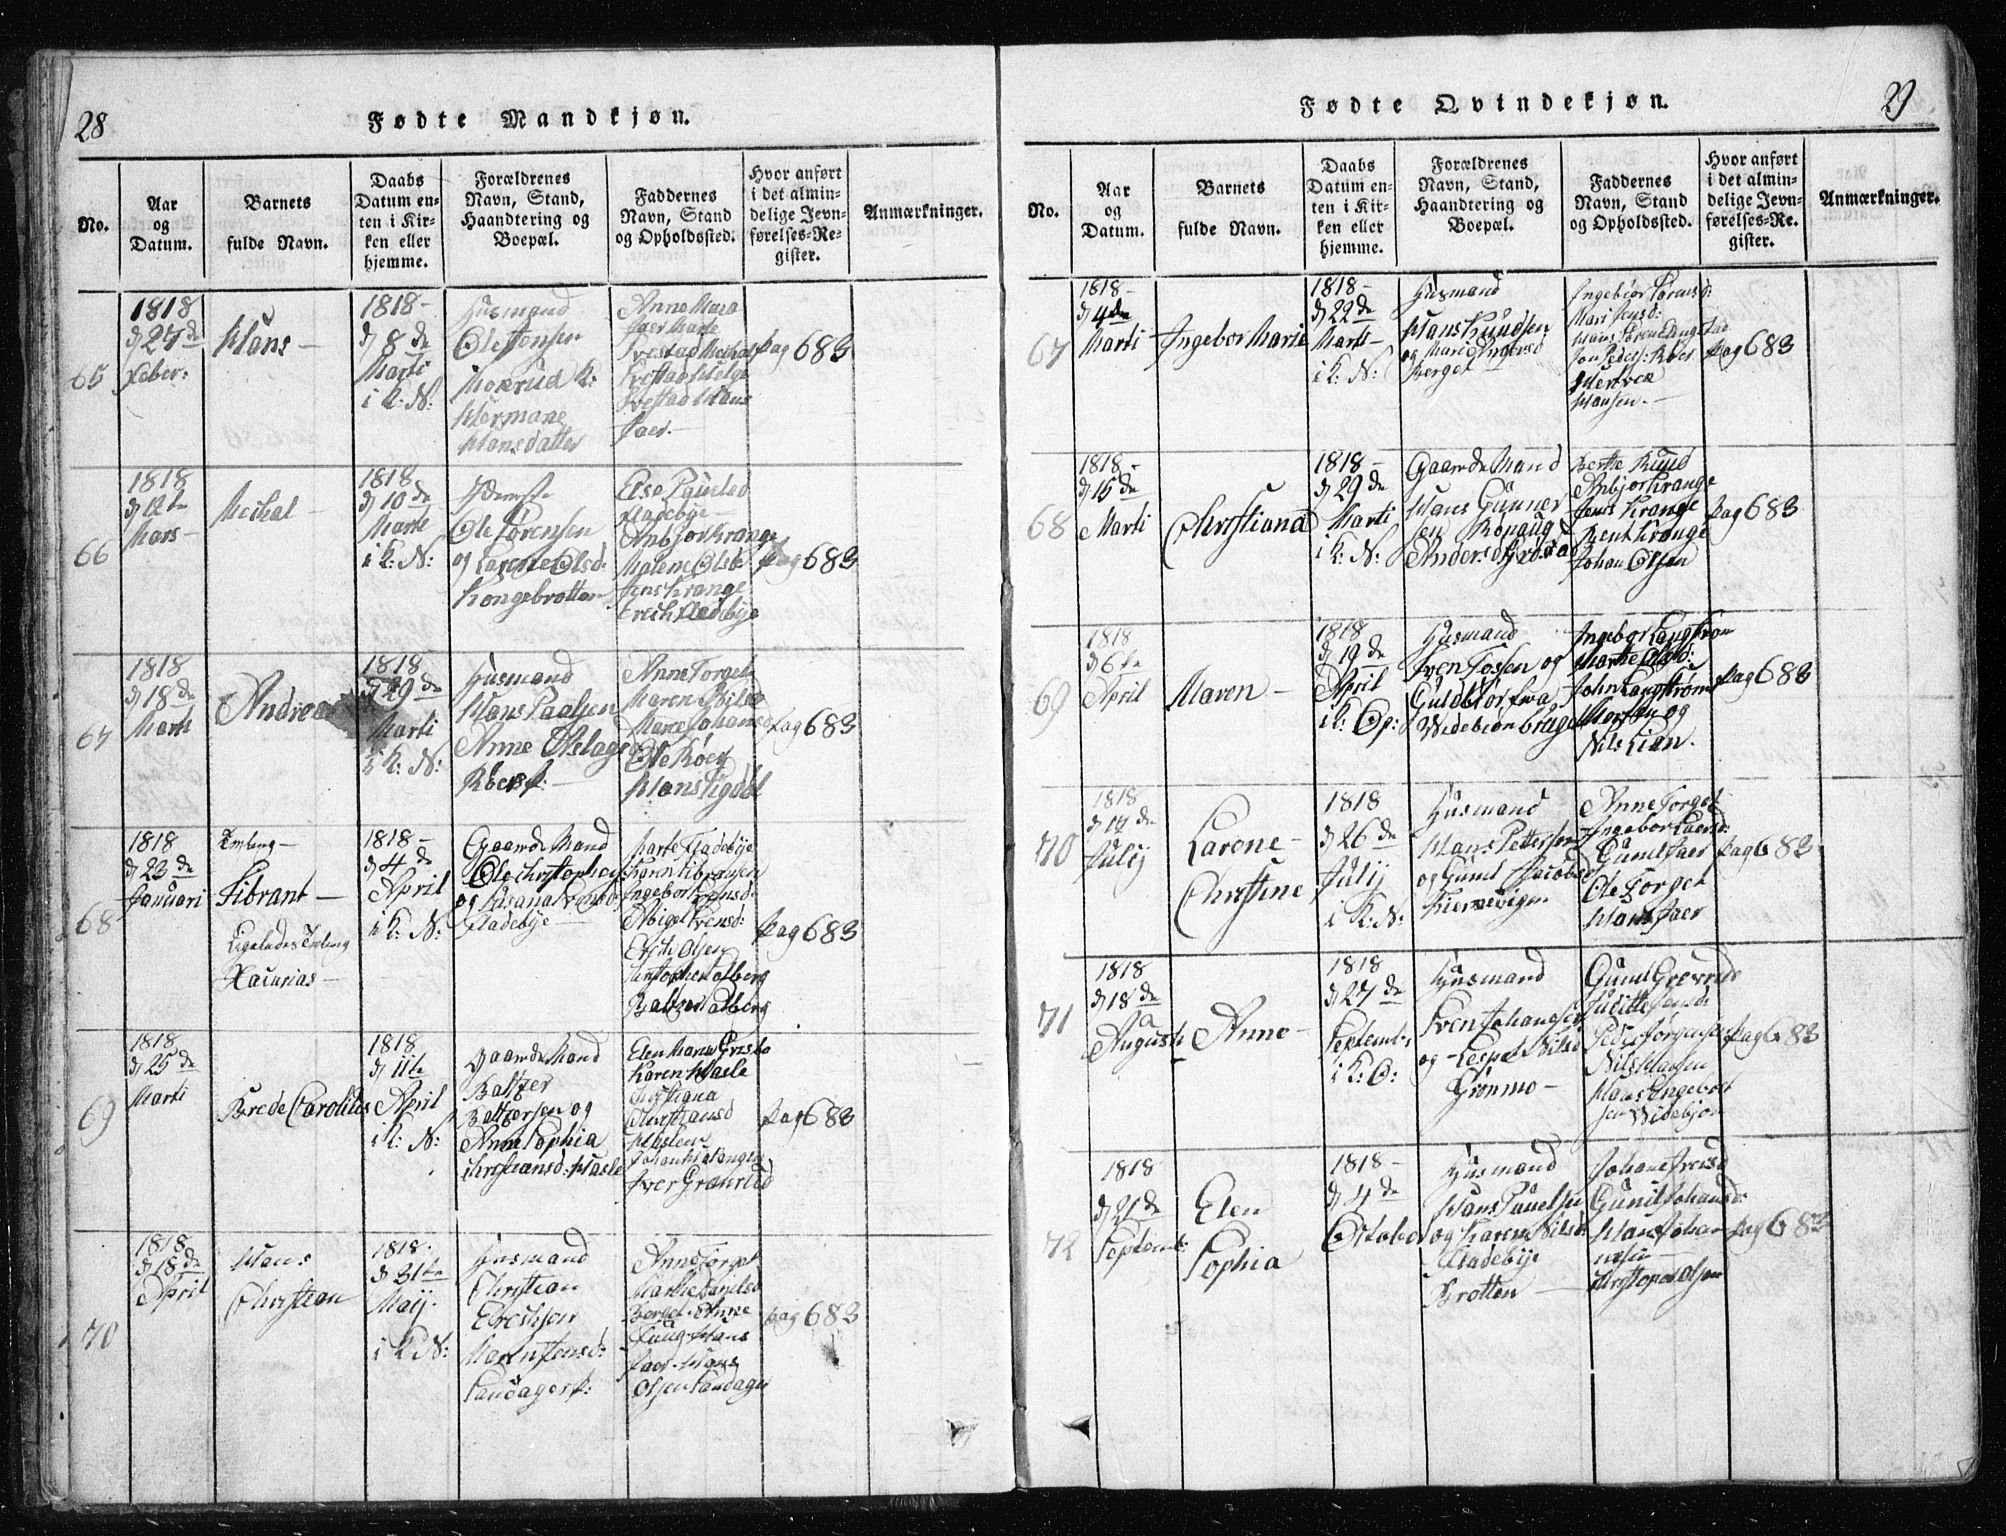 28
Fødte Mandkjøn.
No.
Aar
og
Datum.
Barnets
fulde Navn.
Daabs
Datum en-
ten i Kir-
ken eller
hjemme.
Forældrenes
Navn, Stand,
Haandtering og
Boepæl.
Faddernes
Navn, Stand
og Opholdssted.
Hvor anført
i det almin-
delige Jevn-
førelses-Re-
gister.
Anmærkninger.
65
1818
d 27de
Feber:
Hans
1818
d 8de
Marti
i K: N:
Husmand
Ole Jensen
K:
Hermane
Hansdatter
Anne Mara
Jaer Marte
Ivestad Helge
Ivestad Hans
Jaer.
Pag 683
66
1818
d 12te
Mars
Michal
1818
d 10de
Marti
i K: N:
Ole Sørensen
og Larene Olsd:
Kongebrotten
Else Paulsd
Fladebye
Anbjør Krange
Malene Olsd:
Jens Krange
Erich Fladebye
Pag 683
67
1818
d 18de
Marti
Andreas
1818
d 29de
Marti
i K: N:
Husmand
Hans Paalsen
Anne Aslags
Anne Torgels
Maren Nilsd
Maren Johansd
Ole Røer
Hans Sigdal
Pag 683
68
1818
d 23de
Januari
Tvilling
Fibrant
Ligeledes Tvilling
Zacarias
1818
d 4de
April
i K: N:
Gaarde Mand
Ole Christophers
og Susana Svensd:
Fladebye
Marte Fladebye
Karen Fibransen
Ingebor Svensd:
Abigel Svensd:
Erich Olsen
Christopher Talberg
Baltzer Talberg
Pag 683
69
1818
d 25de
Marti
Brede Carolius
1818
d 11te
April
i K: N:
Gaarde Mand
Baltzer
Baltzersen og
Anne Sophia
Christiansd: Hasle
Elen Maria
Karen Hasle
Christiana
Christiansd
Iver Grønrud
Pag 683
70
1818
d 18de
April
Hans
Christian
1818
d 31te
Maij
i K: N:
Husmand
Christian
Erichsen
Maren Jensd:
Anne Torgel
Marthe Danilsd
Berget Anne
Haug Hans
Jaer Hans
Olsen Sandager
Pag 683
29
Fødte Qvindekjøn.
No.
Aar
og
Datum.
Barnets
fulde Navn.
Daabs
Datum en-
ten i Kir-
ken eller
hjemme.
Forældrenes
Navn, Stand,
Haandtering og
Boepæl.
Faddernes
Navn, Stand
og Opholdssted.
Hvor anført
i det almin-
delige Jevn-
førelses-Re-
gister.
Anmærkninger.
67
1818
d 4de
Marti
Ingebor Marie
1818
d 22de
Marti
i K: N:
Husmand
Hans Knudsen
og Mari Andersd
Berget
Ingebior Sørensd:
Mari Jensd:
Hans Søren
Jon Peders: Roer
Hansen.
Pag 683
68
1818
d 15de
Marti
Christiana
1818
d 29de
Marti
i K: N:
Gaarde Mand
Hans Gunner
sen Ronaug
Andersd
Berthe Ruud
Anbjør Krange
Jens Krange
Bent Krange
Johan Olsen
Pag 683
69
1818
d 6te
April
Maren
1818
d 19de
April
i K: Op:
Husmand
Sven Tosen og
Guldbior Ewa
Widebiønbruget
Ingebor Langstrøm
Marthe Olsd:
John Langstrøm
Morten og
Nils Lian.
Pag 683
70
1818
d 14de
Julij
Larene
Christine
1818
d 26de
Julij
i K: N:
Husmand
Hans Pettersen
og Gunil Jacobsd
Kierrevigen
Anne Torgel
Ingebor Laersd:
Gunil Jaer
Ole Torgel
Hans Jaer
Pag 683
71
1818
d 18de
Augusti
Anne
1818
d 27de
Septemb:
i K: O:
Husmand
Sven Johansen
og Lespet Nilsd
Grønmo
Gunil Grønrud
Juditte Jensd:
Peder Jørgensen
Nils Hansen
Hans Ingebret
sen Widebjøn
Pag 683
72
1818
d 21de
Septemb:
Elen
Sophia
1818
d 4de
Octobo
Husmand
Hans Paulsen
og Karen Nilsd:
Fladebije
Brotten
Johane Iversd
Gunil Johansd:
Hans Johan
nesen
Christopher Olsen
Pag 683